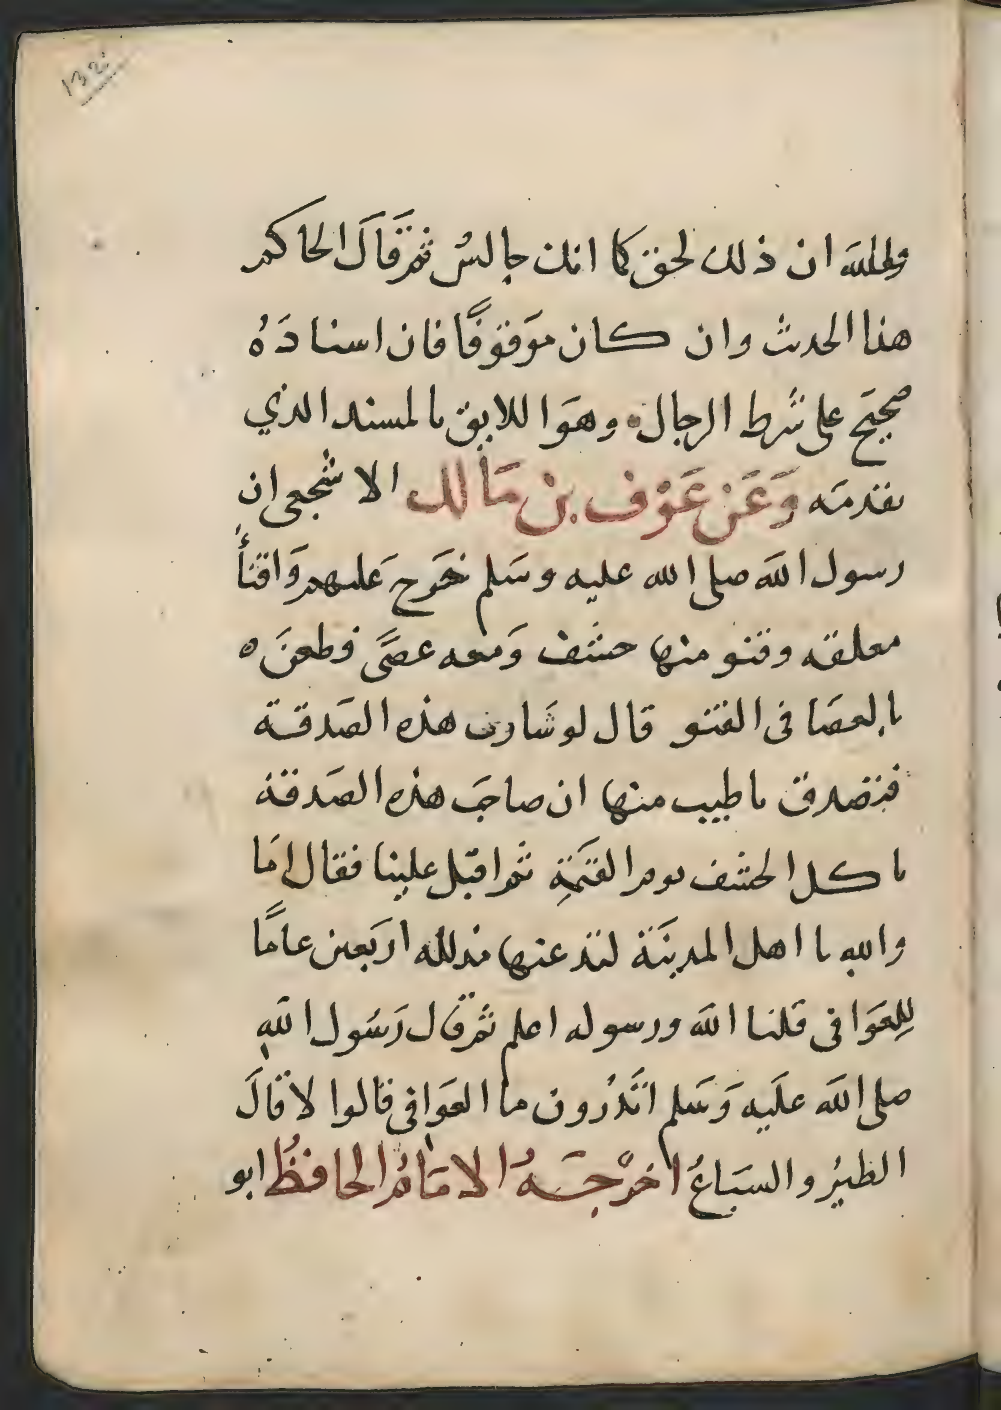 132
والله ان ذلك لحق كما انك جالس ثم قَالَ الحاكم
هذا الحدث وان كان موَقوفًا فان اسنادَهُ
صحيح على شَرط الرجال وهوَ اللايق بالمسند الذي
يقدمه وَعَن عَوْف بن مَالك الاشجعي ان
رسول الله صلى الله عليه وسَلم خَرج عَليهم وَاقنأُ
معلقه وقنو منها حشف وَمعه عصًى فطعنَه
بالعصَا فى القنو قال لو شَارب هذه الصَدقة
فتصدق باطيب منها ان صاحبَ هذه الصَدقة
ياكل الحشف يوم القيَمةِ ثم اقبَل علينا فقال امَا
والله يا اهل المدينَة لتدعنها مذلله اربَعين عامًا
لِلعَوافى قلنا الله ورسوله اعلم ثم قال رَسُول اللهِ
صلى الله علَيه وَسَلم اتَدْرون ما العوَافى قالوا لا قالَ
الطَيْر والسبَاعُ اخرْجَهُ الامَامُ الحافظُ ابو